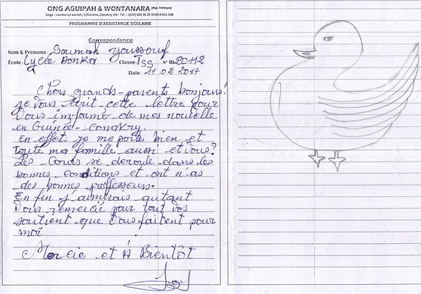 ONG AGUIPAH & WONTANARA
PROGRAMME D'ASSISTANCE SCOLAIRE
Correspondance
Nom & Prénoms Doumah Youssouf
École Lycée Donka Classe TSS N° ID 20412
Date: 11.02.2017
Chers grands-parents bonjours!
je vous écrit cette lettre pour
Vous informé de mes nouvelle
en Guinée-conakry.
En effet, je me porte bien et
toute ma famille aussi et vous?
Les Cours se deroule dans les
bonnes conditions et ont n'as
des bonnes professeurs.
En fin j'aimerais autant
vous remercié pour tout vos
soutient que vous faitent pour
moi.
Mercie et À Bientôt